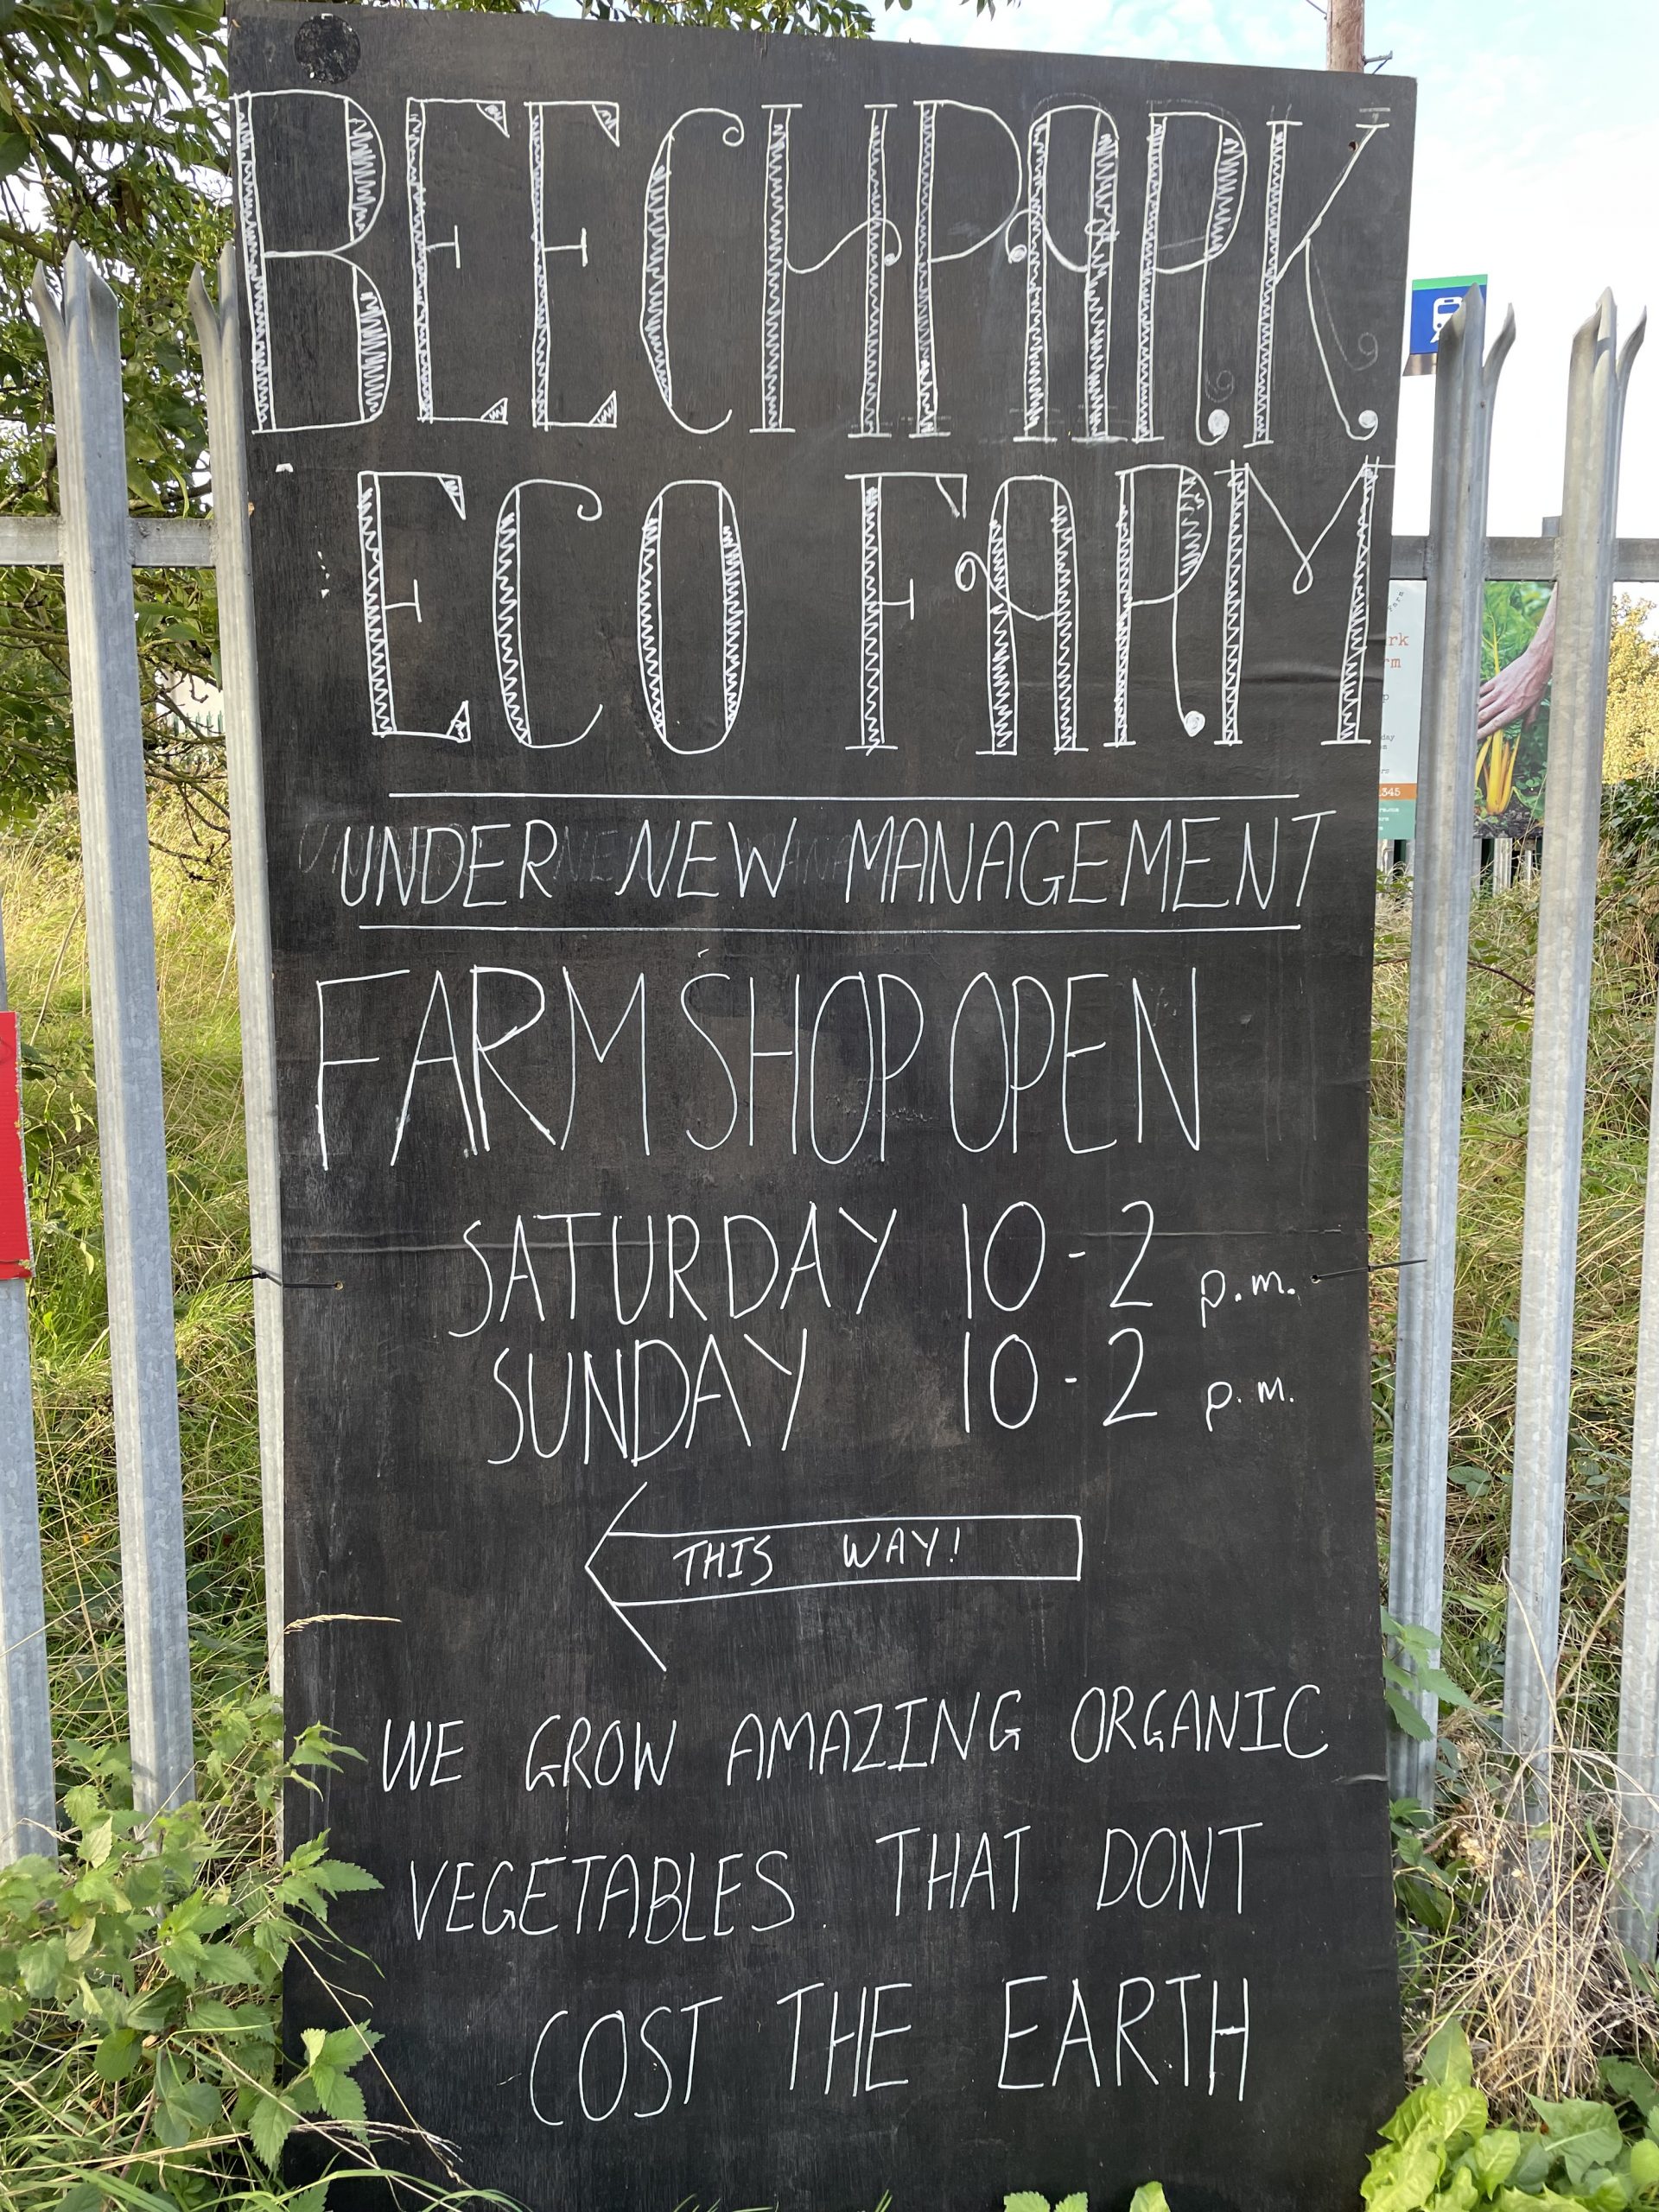 BEECHPARK
ECO FARM
UNDER NEW MANAGEMENT
FARM SHOP OPEN
SATURDAY 10-2 p.m.
SUNDAY 10-2 p.m.
THIS WAY!
WE GROW AMAZING ORGANIC
VEGETABLES THAT DONT
COST THE EARTH